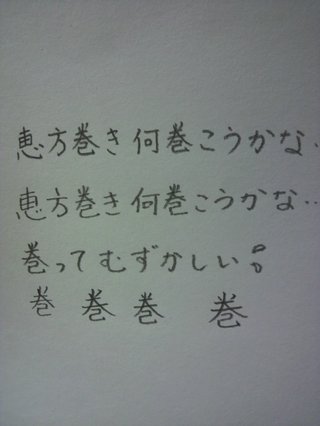 恵方巻き何巻こうかな‥
恵方巻き何巻こうかな‥
巻ってむずかしい!!
巻 巻 巻 巻